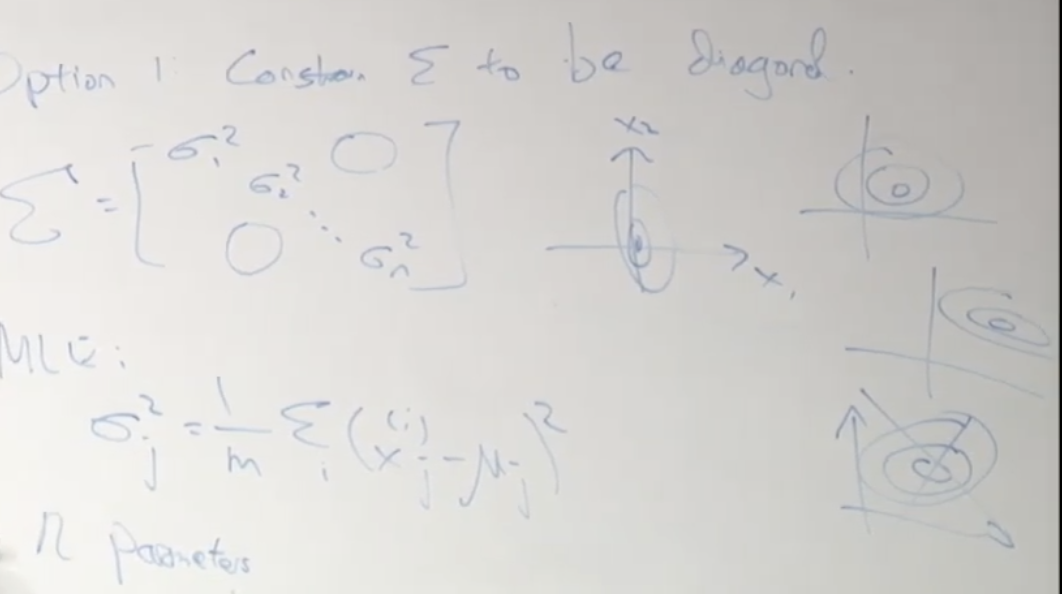 Option 1: Constrain Σ to be diagonal.
Σ = [ σ₁² σ₂² ⋱ σₙ² 0 0 ]
x₂
x₁
MLE:
σⱼ² = 1/m Σᵢ (xⱼ⁽ⁱ⁾ - μⱼ)²
n parameters